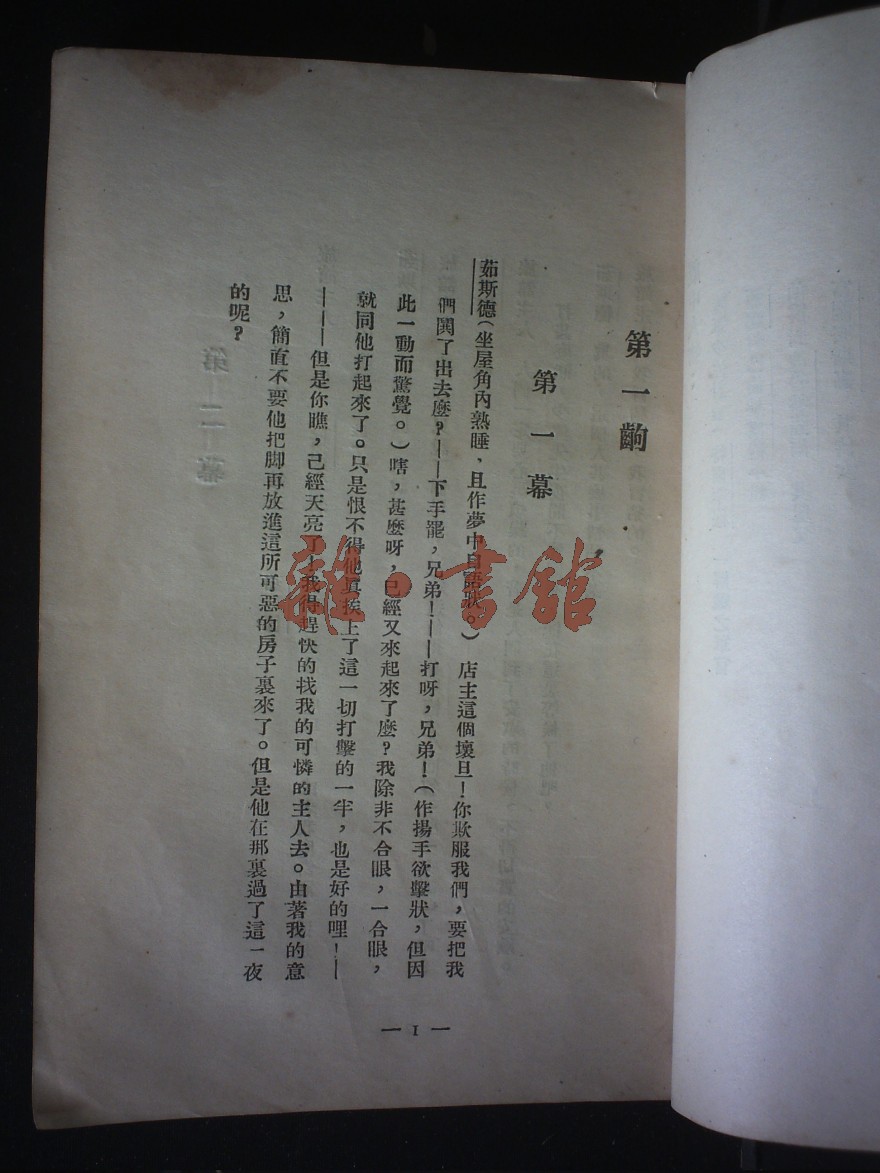 第一齣
第一幕
茹斯德(坐屋角內熟睡,且作夢中自語狀。) 店主這個壞旦!你欺服我們,要把我
們闋了出去麼?——下手罷,兄弟!——打呀,兄弟!(作揚手欲擊狀,但因
此一動而驚覺。)嘻,甚麼呀,已經又來起來了麼?我除非不合眼,一合眼,
就同他打起來了。只是恨不得他真挨上了這一切打擊的一半,也是好的哩!—
———但是你瞧,己經天亮了!我得趕快的找我的可憐的主人去。由著我的意
思,簡直不要他把脚再放進這所可惡的房子裏來了。但是他在那裏過了這一夜
的呢?
— 1 —
雜·書館